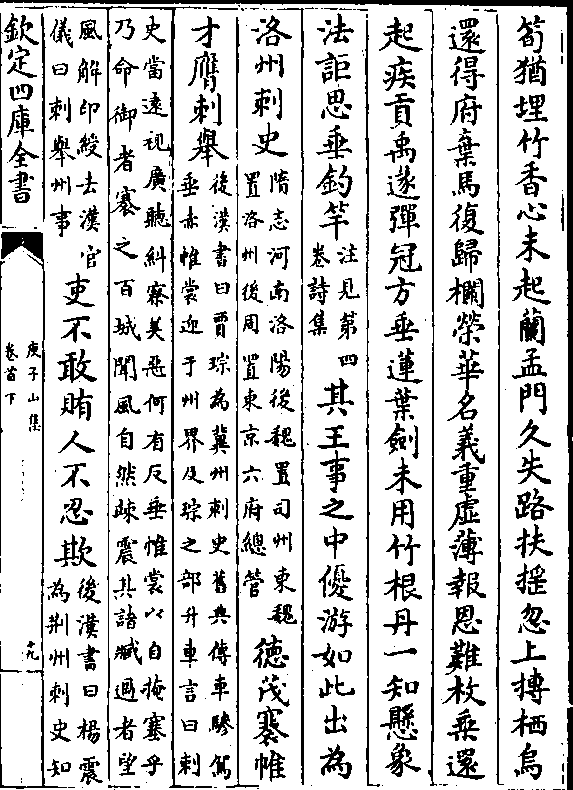 筍猶埋竹香心未起蘭孟門久失路扶搖忽上摶栖烏
還得府棄馬復歸欄榮華名義重虛薄報恩難枚乘還
起疾貢禹遂彈冠方垂蓮葉劍未用竹根丹一知懸象
法詎思垂釣竿注見第四卷詩集其王事之中優游如此出為
洛州刺史隋志河南洛陽後魏置司州東魏置洛州後周置東京六府總管德茂褰帷
才膺刺舉後漢書曰賈琮為冀州刺史舊典傳車驂駕垂赤帷裳迎于州界及琮之部升車言曰刺
史當遠視廣聽糾察美惡何有反垂帷裳以自掩塞乎
乃命御者褰之百城聞風自然疎震其諸贓過者望
風解印綬去漢官儀曰刺舉州事吏不敢賄人不忍欺後漢書曰楊震為荆州刺史知
欽定四庫全書
庾子山集
卷首下
十九